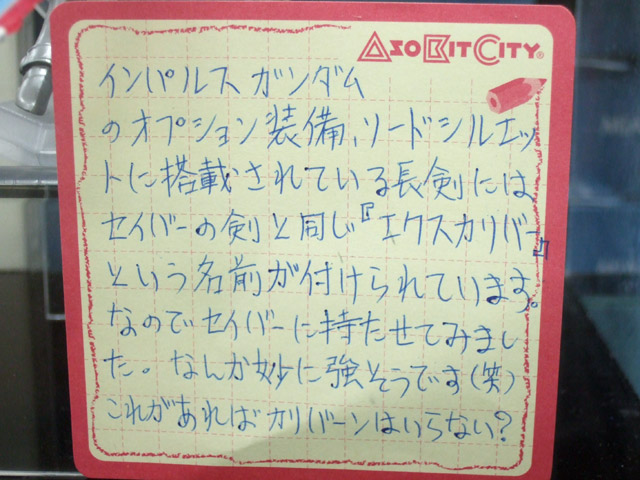 ASOBITCITY®
インパルス ガンダム
のオプション装備、ソードシルエッ
トに搭載されている長剣には
セイバーの剣と同じ『エクスカリバー』
という名前が付けられています。
なのでセイバーに持たせてみまし
た。なんか妙に強そうです(笑)
これがあればカリバーンはいらない?